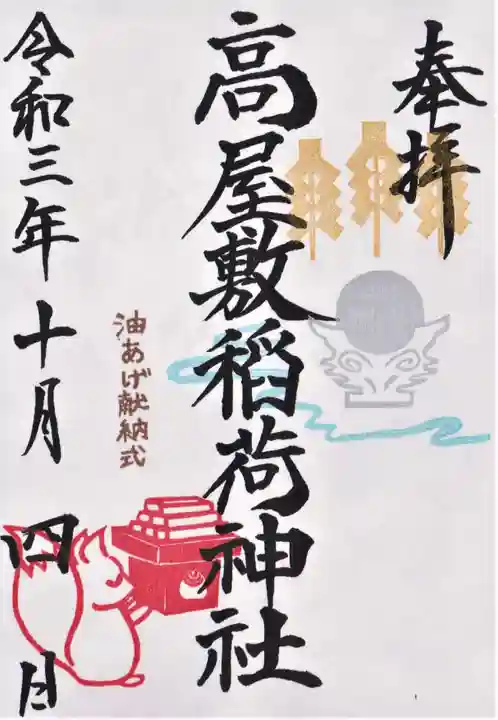 奉拝
高屋敷稲荷神社
油あげ献納式
令和三年十月四日